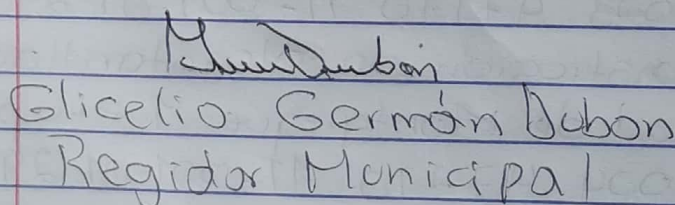 Dubón
Glicelio Germán Dubón
Regidor Municipal